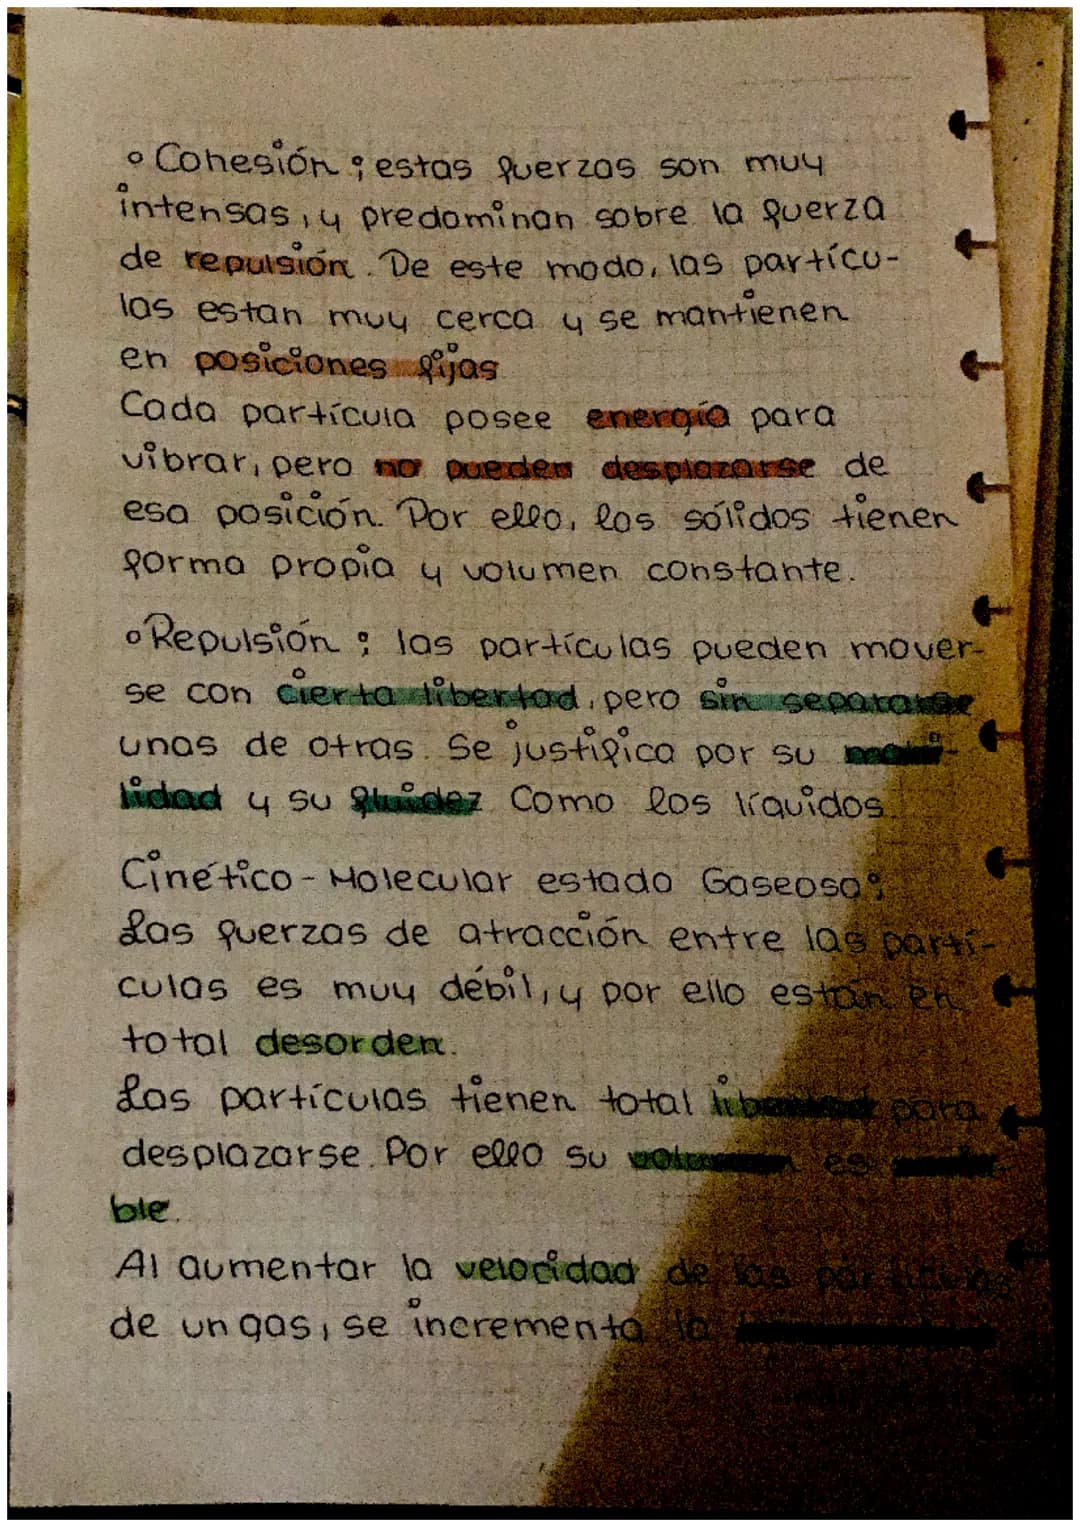 ° Cohesión: estas fuerzas son muy
intensas, y predominan sobre la fuerza
de repulsión. De este modo, las partícu-
las estan muy cerca y se mantienen
en posiciones fijas
Cada partícula posee energía para
vibrar, pero no pueden desplazarse de
esa posición. Por ello, los sólidos tienen
forma propia y volumen constante.
° Repulsión: las partículas pueden mover-
se con cierta libertad, pero sin separarse
unas de otras. Se justifica por su movi-
lidad y su fluidez Como los líquidos.
Cinético-Molecular estado Gaseoso:
Las fuerzas de atracción entre las partí-
culas es muy débil, y por ello están en
total desorden.
Las partículas tienen total libertad para
desplazarse. Por ello su volumen es
ble.
Al aumentar la velocidad de las partículas
de un gas, se incrementa la